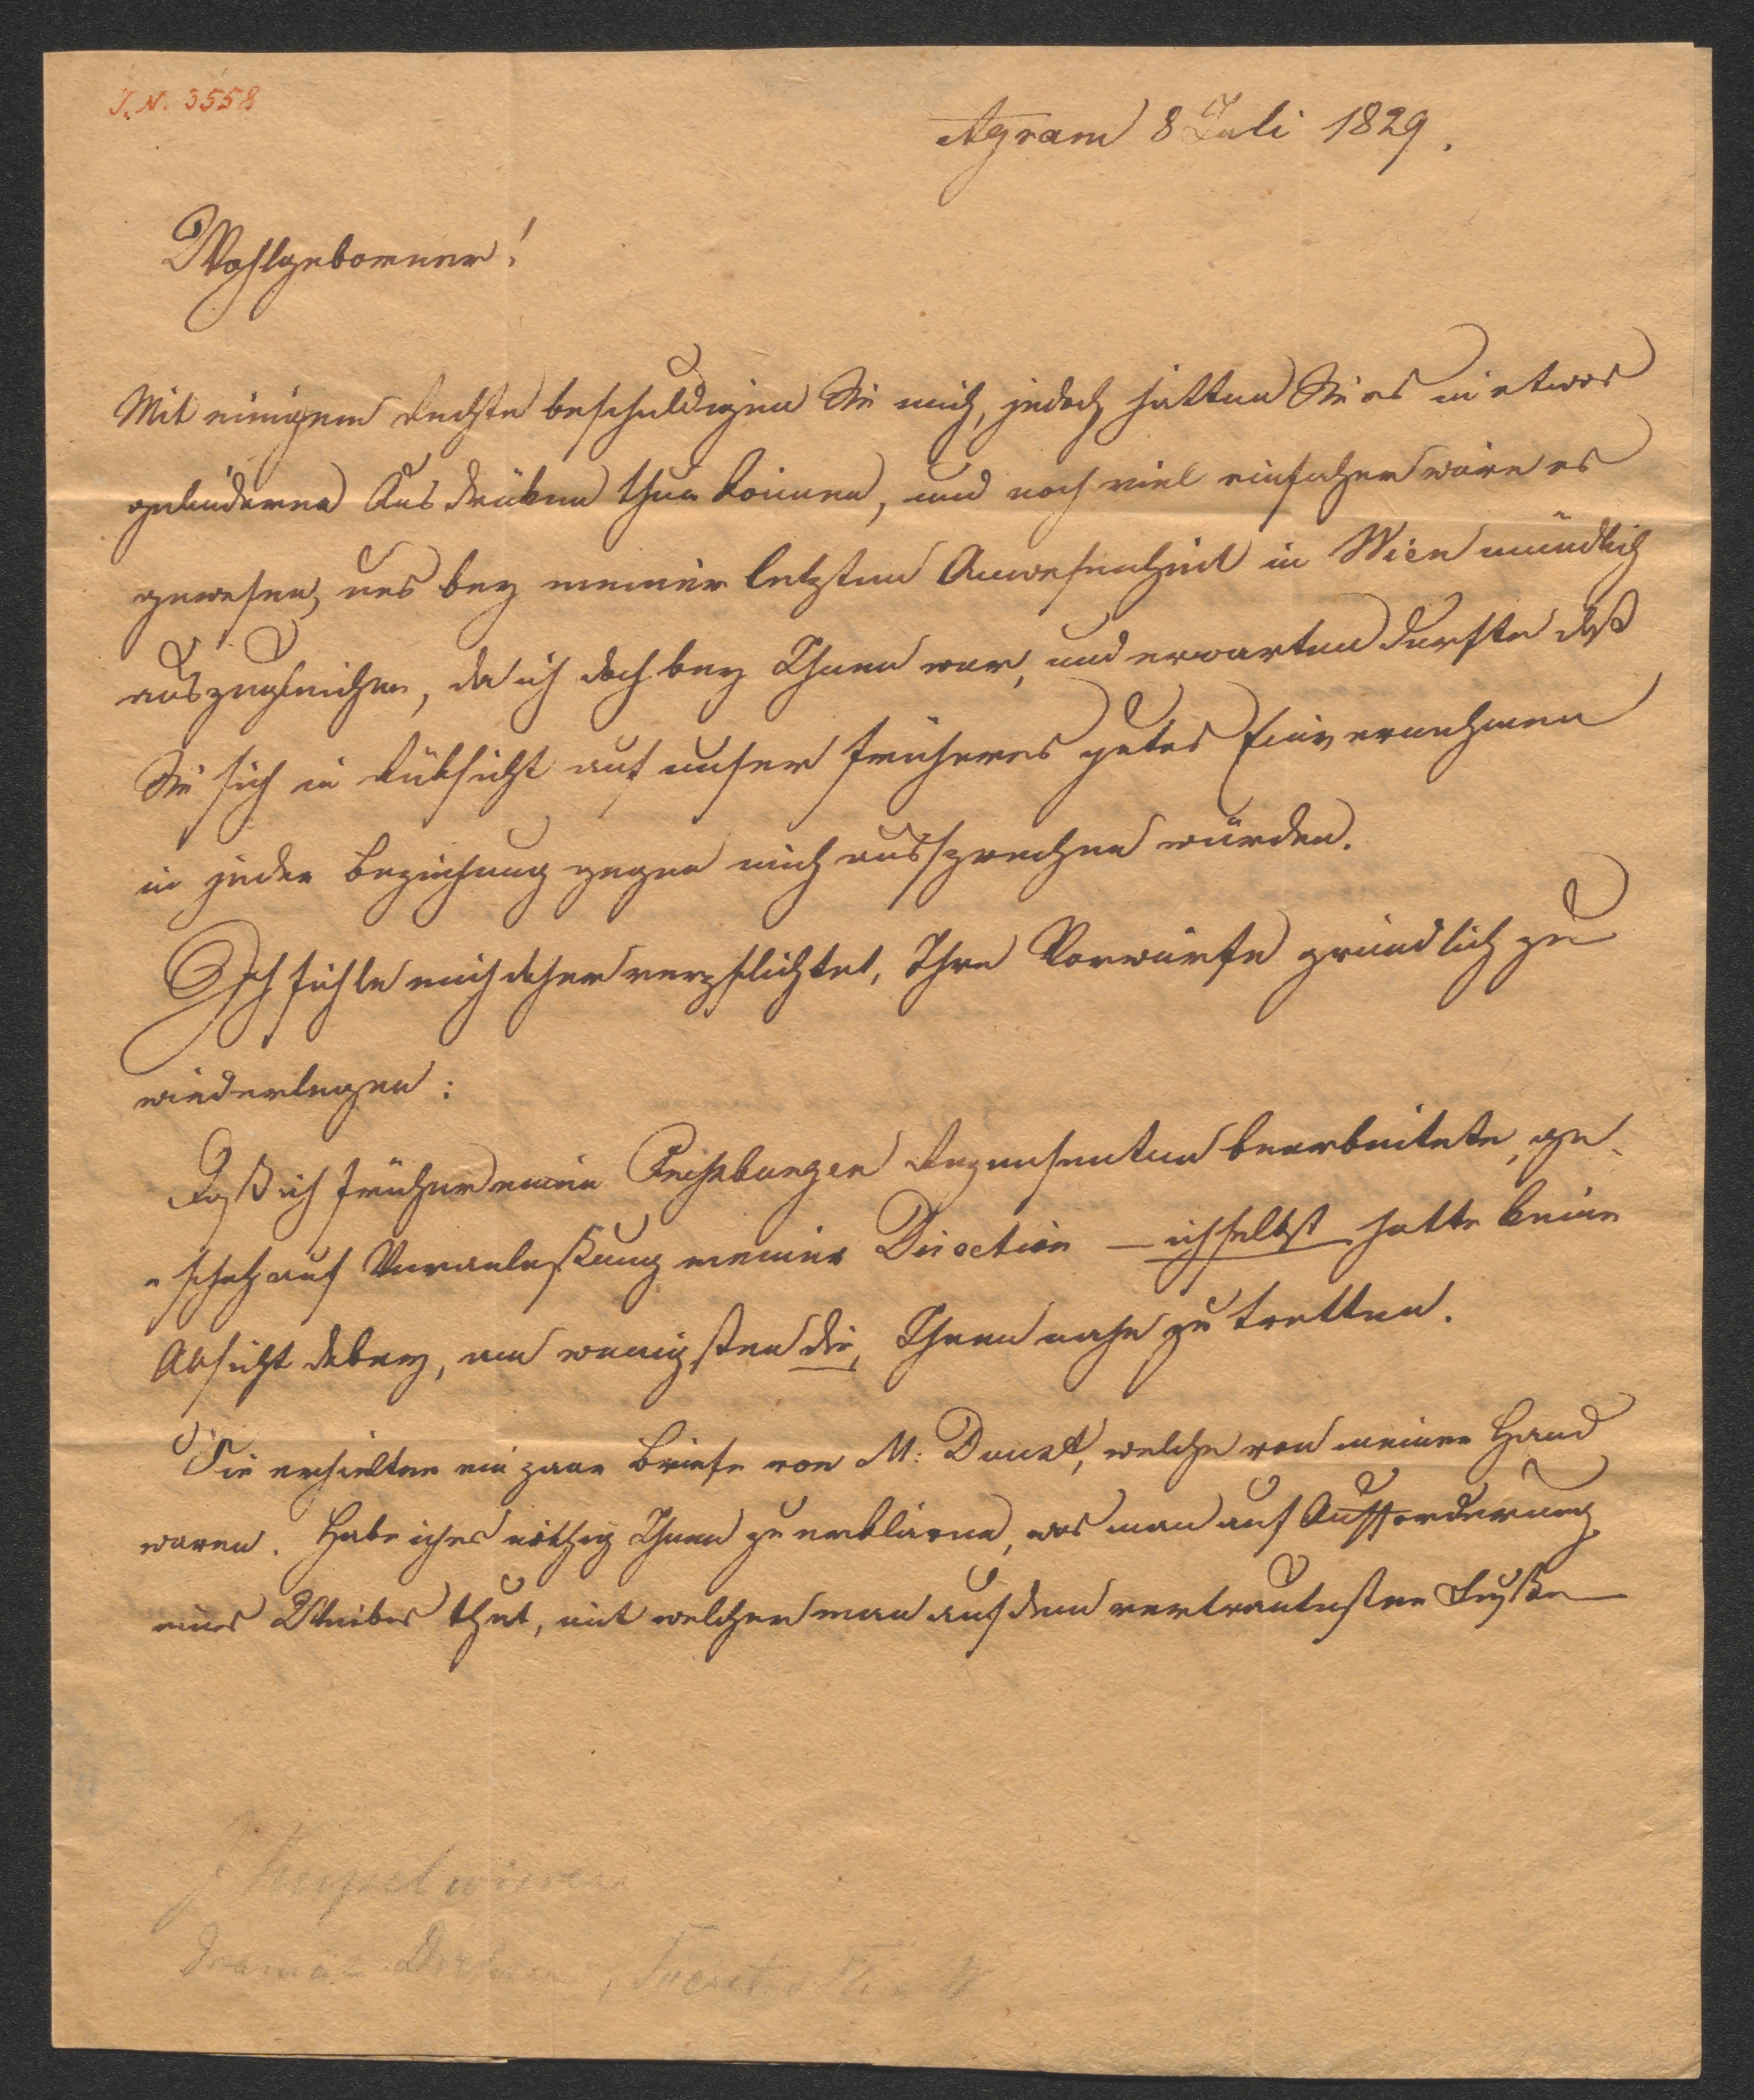 I. N. 3558
Agram 8 Juli 1829.
Wohlgeborner!
Mit einigem Rechte beschuldigen Sie mich, jedoch hätten Sie es in etwas
gelinderen Ausdrüken thun können, und noch viel einfacher wäre es
gewesen, uns bey meiner letzten Anwesenheit in Wien mündlich
auszugleichen, da ich doch bey Ihnen war, und erwarten durfte daß
Sie sich in Rüksicht auf unser früheres gutes Einvernehmen
in jeder Beziehung gegen mich aussprechen würden.
Ich fühle mich daher verpflichtet, Ihre Vorwürfe gründlich zu
wiederlegen:
Daß ich früher einen Rezensenten bearbeitete, ge-
-schah auf Veranlaßung meiner Direction – ich selbst hatte keine
Absicht dabey, am wenigsten die, Ihnen nahe zu tretten.
Sie erhielten ein paar Briefe von M: welche von meiner Hand
waren. Habe ich es nöthig Ihnen zu erklären, was man auf Aufforderung
eines Weibes thut, mit welcher man auf dem vertrautesten Fuße